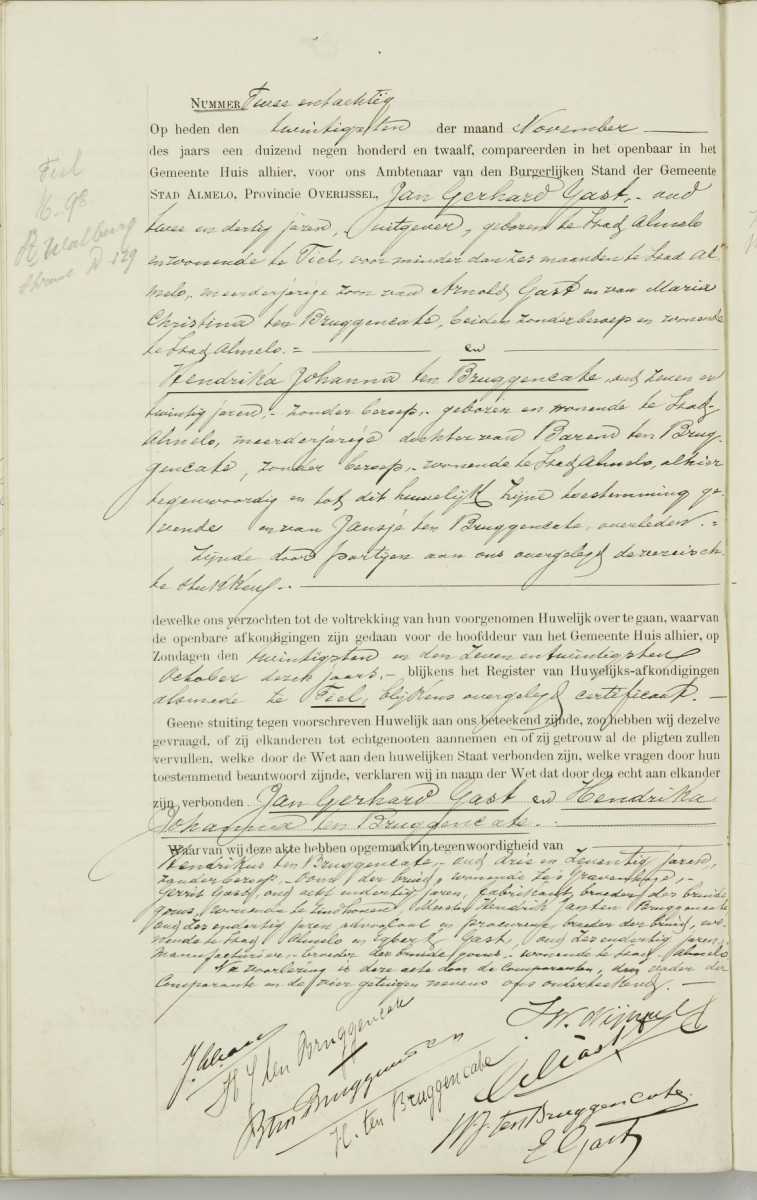 NUMMER Twee en tachtig
Op heden den twintigsten der maand November
des jaars een duizend negen honderd en twaalf, compareerden in het openbaar in het
Gemeente Huis alhier, voor ons Ambtenaar van den Burgerlijken Stand der Gemeente
STAD ALMELO, Provincie OVERIJSSEL, Jan Gerhard Gast, - oud
twee en dertig jaren, - uitgever, geboren te Stad Almelo
en wonende te Tiel, voor minder dan zes maanden te Stad Al-
melo, meerderjarige zoon van Arnold Gast en van Maria
Christina ten Bruggencate, beiden zonder beroep en wonende
te Stad Almelo. =
en
Hendrika Johanna ten Bruggencate, oud zeven en
twintig jaren, - zonder beroep, - geboren en wonende te Stad-
Almelo, meerderjarige dochter van Barend ten Brug-
gencate, zonder beroep, - wonende te Stad Almelo, alhier
tegenwoordig en tot dit huwelijk zijne toestemming ge-
vende en van Jansje ten Bruggencate, overleden. =
Zijnde door partijen aan ons overgelegd de vereisch-
te stukken. -
dewelke ons verzochten tot de voltrekking van hun voorgenomen Huwelijk over te gaan, waarvan
de openbare afkondigingen zijn gedaan voor de hoofddeur van het Gemeente Huis alhier, op
Zondagen den twintigsten en den zeven en twintigsten
October dezes jaars, - blijkens het Register van Huwelijks-afkondigingen
alsmede te Tiel, blijkens overgelegd certificaat. -
Geene stuiting tegen voorschreven Huwelijk aan ons beteekend zijnde, zoo hebben wij dezelve
gevraagd, of zij elkanderen tot echtgenooten aannemen en of zij getrouw al de pligten zullen
vervullen, welke door de Wet aan den huwelijken Staat verbonden zijn, welke vragen door hun
toestemmend beantwoord zijnde, verklaren wij in naam der Wet dat door den echt aan elkander
zijn verbonden Jan Gerhard Gast en Hendrika
Johanna ten Bruggencate. -
Waar van wij deze akte hebben opgemaakt in tegenwoordigheid van
Hendrikus ten Bruggencate, - oud drie en zeventig jaren,
zonder beroep, - oom der bruid, wonende te 's Gravenhage, -
Gerrit Gast, oud acht en dertig jaren, fabrikant, broeder des bruide
goms, wonende te Eindhoven, Hendrik ten Bruggencate
oud zes en dertig jaren, advocaat en procureur, broeder der bruid, wo-
nende te Stad Almelo en Egbert Gast, oud zes en dertig jaren,
manufacturier, - broeder des bruide goms, - wonende te Stad Almelo
Na voorlezing is deze acte door de Comparanten, den vader der
Comparante en de vier getuigen nevens ons onderteekend. -
H J ten Bruggencate
B ten Bruggencate
H. ten Bruggencate
G Gast
W J. ten Bruggencate.
E Gast
Tiel
16-98